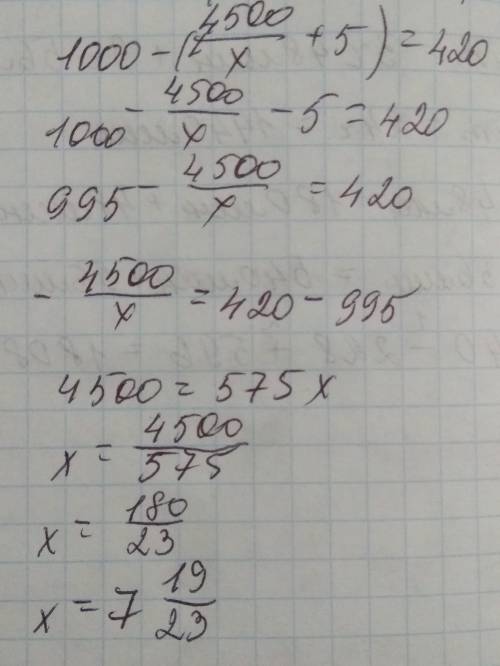 1000 - (4500/x + 5) = 420
1000 - 4500/x - 5 = 420
995 - 4500/x = 420
- 4500/x = 420 - 995
4500 = 575x
x = 4500/575
x = 180/23
x = 7 19/23